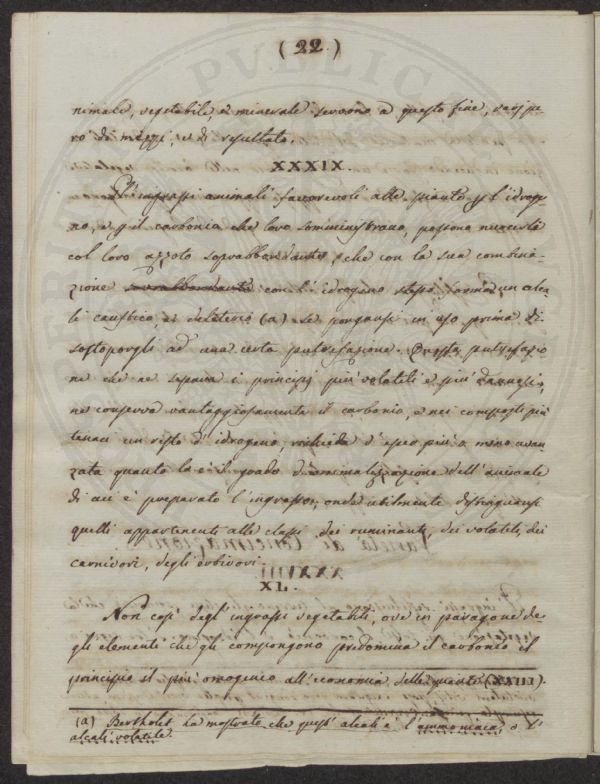 ( 22 )
nimale, vegetabile e minerale servono a questo fine, varj pe
rò di mezzi, e di resultato.
XXXIX.
Gl'ingrassi animali favorevoli alle piante p l'idroge
no, e p il carbonio che loro somministrano, possono nuocerle
col loro azoto soprabbondante, che con la sua combina-
zione sovrabbondante con l'idrogeno stesso forma un alca
li caustico, e deleterio (a) se pongansi in uso prima di
sottoporgli ad una certa putrefazione. Questa putrefazio
ne che ne separa i principj più volatili e più dannosi,
ne conserva vantaggiosamente il carbonio, e nei composti più
tenaci un resto d'idrogeno, richiede d'esser più o meno avan
zata quanto lo è il grado d'animalizzazione dell'animale
di cui è preparato l'ingrasso; onde utilmente distinguansi
quelli appartenenti alle classi dei ruminanti, dei volatili, dei
carnivori, degli erbivori.
XL.
Non così degl'ingrassi vegetabili, ove in paragone de
gli elementi che gli compongono predomina il carbonio il
principio il più omogenio all'economia delle piante (XXVIII).
(a) Bertholet ha mostrato che quest'alcali è l'ammoniaca, o l'
alcali volatile.